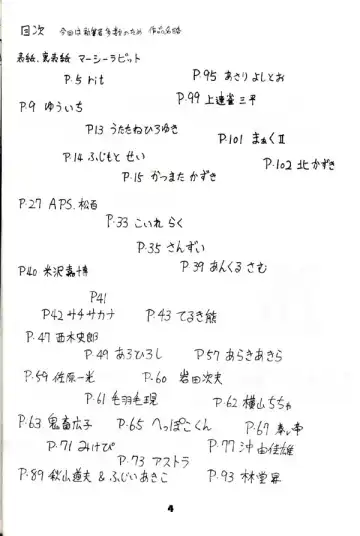 目次 今回は執筆者多数のため 作品名略
表紙、裏表紙 マーシーラビット
P.5 rit
P.95 あさりよしとお
P.9 ゆういち
P.99 上連雀三平
P.13 うたたねひろゆき
P.101 まぁくII
P.14 ふじもと せい
P.102 北かずき
P.15 かつまた かずき
P.27 APS.松百
P.33 こいれ らく
P.35 さんずい
P.39 あんくる さむ
P.40 米沢嘉博
P.41
P.42 サチサカナ
P.43 てるき熊
P.47 西木史郎
P.49 あろひろし
P.57 あらきあきら
P.59 佐原一光
P.60 岩田次夫
P.61 毛羽毛現
P.62 横山ちちゃ
P.63 鬼畜広子
P.65 へっぽこくん
P.67
P.71 みけぴ
P.73 アストラ
P.77 沖由佳雄
P.89 秋山道夫 & ふじいあきこ
P.93 林堂昇
4